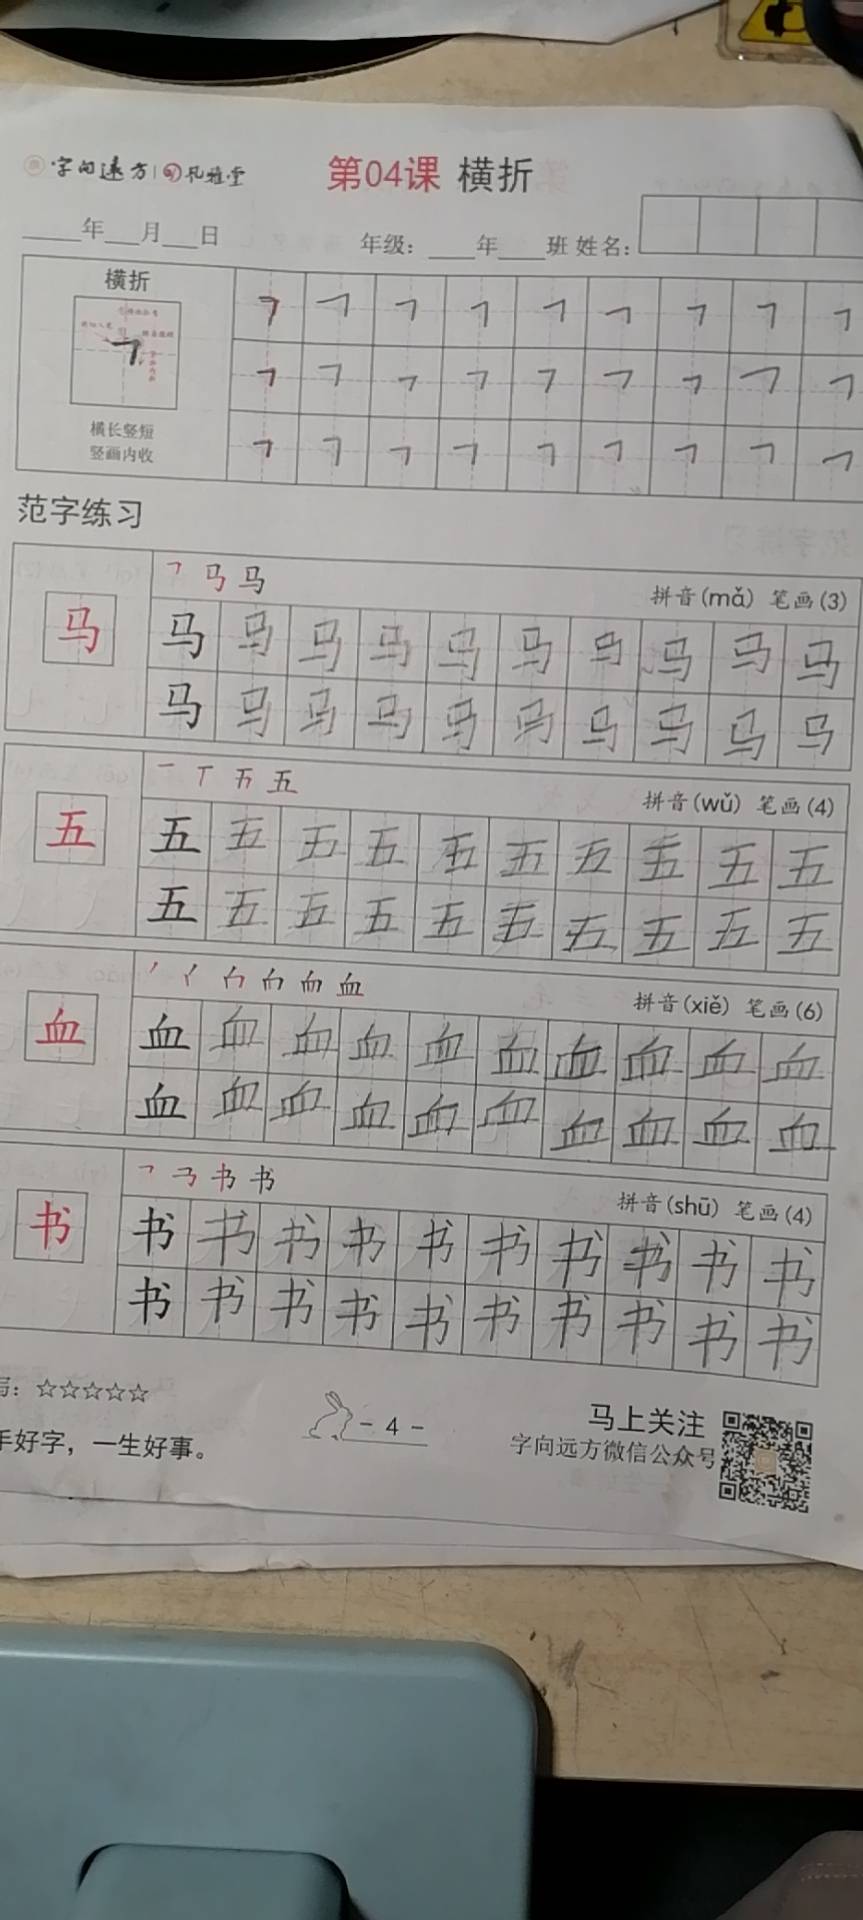 字向远方 孔雅堂
第04课 横折
年 月 日 年级: 年 班 姓名:
横折
横长竖短
竖画内收
㇕ ㇕ ㇕ ㇕ ㇕ ㇕ ㇕ ㇕ ㇕
㇕ ㇕ ㇕ ㇕ ㇕ ㇕ ㇕ ㇕ ㇕
㇕ ㇕ ㇕ ㇕ ㇕ ㇕ ㇕ ㇕ ㇕
范字练习
马
拼音(mǎ) 笔画(3)
马 马 马 马 马 马 马 马 马 马
马 马 马 马 马 马 马 马 马 马
五
拼音(wǔ) 笔画(4)
五 五 五 五 五 五 五 五 五 五
五 五 五 五 五 五 五 五 五 五
血
拼音(xiě) 笔画(6)
血 血 血 血 血 血 血 血 血 血
血 血 血 血 血 血 血 血 血 血
书
拼音(shū) 笔画(4)
书 书 书 书 书 书 书 书 书 书
书 书 书 书 书 书 书 书 书 书
☆☆☆☆☆
手好字，一生好事。
- 4 -
马上关注
字向远方微信公众号